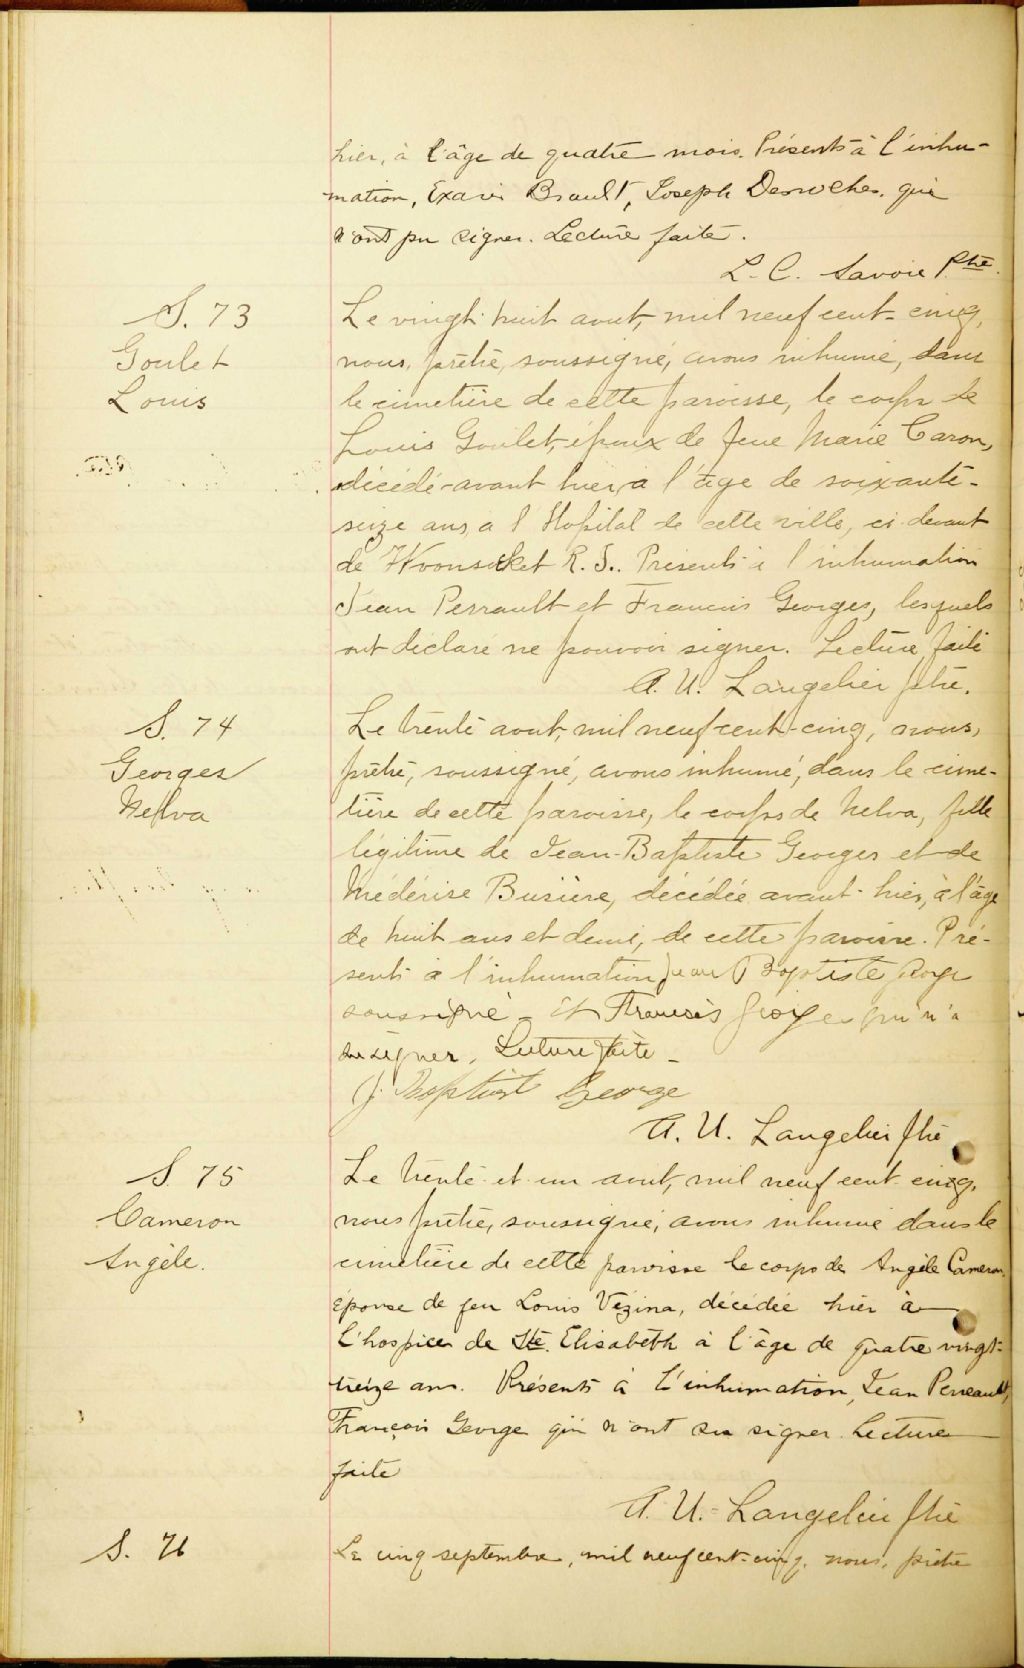 hier, à l'âge de quatre mois. Présents à l'inhu-
mation, Exavier Brault, Joseph Desroches. qui
n'ont pu signer. Lecture faite.
L. C. Savoie Ptre.
S. 73
Goulet
Louis
Le vingt-huit aout, mil neuf cent-cinq,
nous, prêtre, soussigné, avons inhumé, dans
le cimetière de cette paroisse, le corps de
Louis Goulet, époux de feue Marie Caron,
décédé avant hier, à l'âge de soixante-
seize ans, à l'Hopital de cette ville, ci-devant
de Woonsocket R. I.. Présents à l'inhumation
Jean Perrault et Francois Georges, lesquels
ont déclaré ne pouvoir signer. Lecture faite
A. U. Langelier ptre.
S. 74
Georges
Melva
Le trente aout, mil neuf cent-cinq, nous,
prêtre, soussigné, avons inhumé, dans le cime-
tière de cette paroisse, le corps de Melva, fille
légitime de Jean-Baptiste Georges et de
Médérise Busière, décédée avant-hier, à l'âge
de huit ans et demi, de cette paroisse. Pré-
sents à l'inhumation Jean Baptiste George
soussigné - et Francois George qui n'a
su signer. Lecture faite -
J. Baptist George
A. U. Langelier ptre
S. 75
Cameron
Angèle.
Le trente et un aout, mil neuf cent cinq,
nous prêtre, soussigné, avons inhumé dans le
cimetière de cette paroisse le corps de Angèle Cameron,
épouse de feu Louis Vézina, décédée hier à
l'hospice de Ste. Elisabeth à l'âge de quatre vingt-
treize ans. Présents à l'inhumation, Jean Perreault,
François George qui n'ont su signer. Lecture
faite
A. U. Langelier ptre
S. 76
Le cinq septembre, mil neuf cent-cinq, nous, prêtre